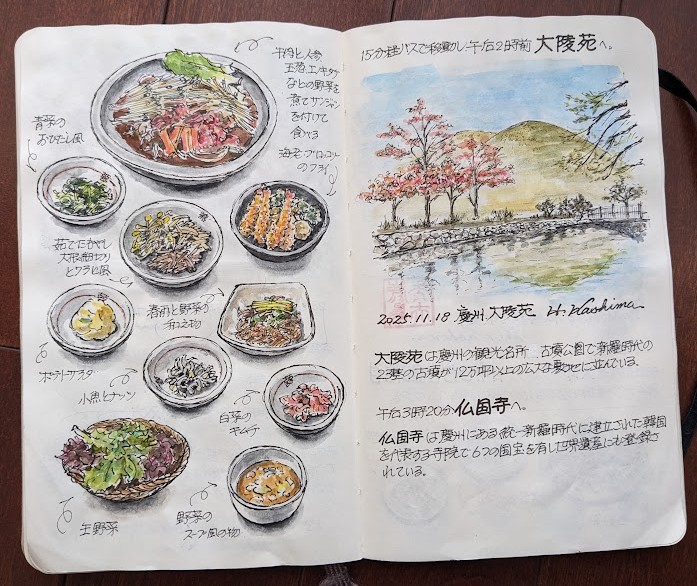 牛肉と人参
玉葱、エノキタケ
などの野菜を
煮てサンジャン
を付けて
食べる
海老・ブロッコリー
のフライ
青菜の
おひたし風
茹でたもやし
大根細切り
とワラビ風
春雨と野菜の
和え物
ポテトサラダ
小魚とナッツ
白菜の
キムチ
生野菜
野菜の
スープ風の物
15分程バスで移動し、午后2時前 大陵苑へ。
2025.11.18 慶州 大陵苑 H. Kashima
大陵苑は慶州の観光名所 古墳公園で新羅時代の
23基の古墳が12万坪以上の広大な敷地に並んでいる。
午后3時20分 仏国寺へ。
仏国寺は慶州にある統一新羅時代に建立された韓国
を代表する寺院で6つの国宝を有し世界遺産にも登録さ
れている。